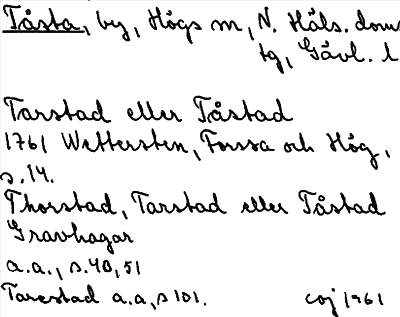 Tåsta, by, Högs sn, N. Häls. doms
tg, Gävl. l
Tarstad eller Tåstad
1761 Wettersten, Forssa och Hög,
s. 14.
Thorstad, Tarstad eller Tåstad
Gravhagar
a.a., s. 40, 51
Tarestad a.a, s 101.
coj 1961